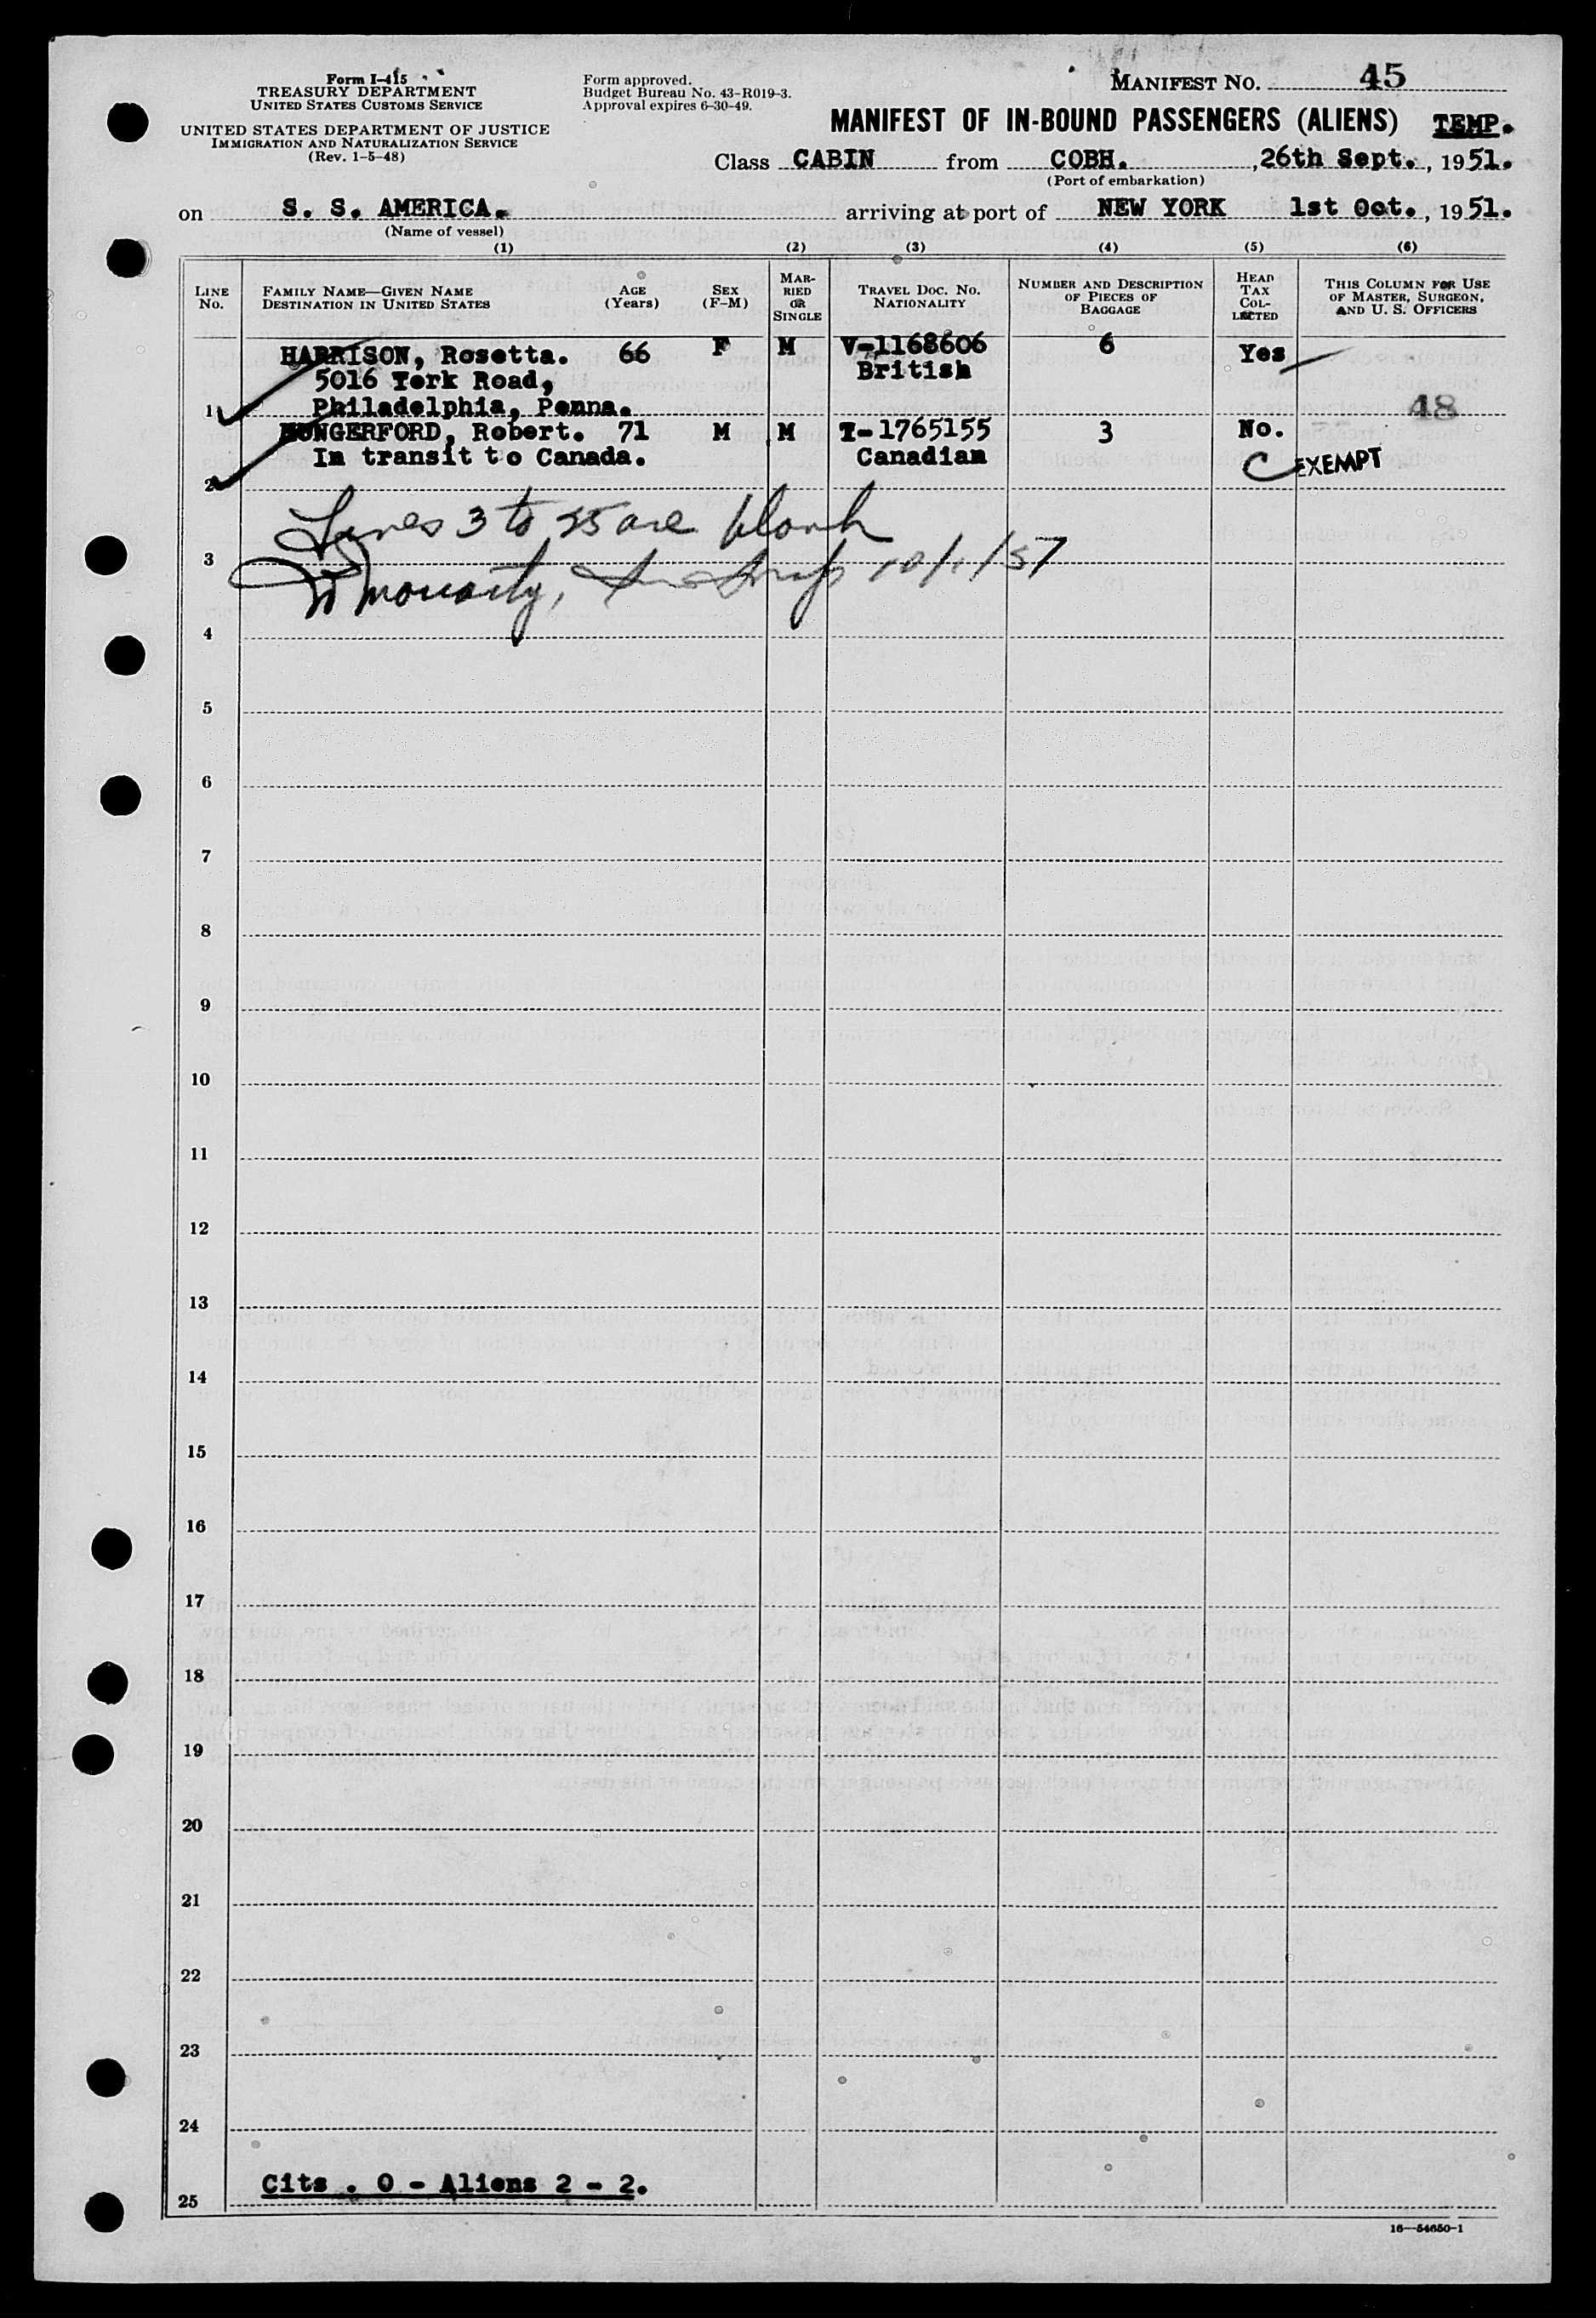 Form I-415
TREASURY DEPARTMENT
UNITED STATES CUSTOMS SERVICE
UNITED STATES DEPARTMENT OF JUSTICE
IMMIGRATION AND NATURALIZATION SERVICE
(Rev. 1-5-48)
Form approved.
Budget Bureau No. 43-R019-3.
Approval expires 6-30-49.
MANIFEST NO. 45
MANIFEST OF IN-BOUND PASSENGERS (ALIENS) TEMP.
Class CABIN from COBH. , 26th Sept. , 1951.
(Port of embarkation)
on S. S. AMERICA. arriving at port of NEW YORK 1st Oct. , 1951.
(Name of vessel)
(1) (2) (3) (4) (5) (6)
LINE No.
FAMILY NAME—GIVEN NAME
DESTINATION IN UNITED STATES
AGE (Years)
SEX (F-M)
MARRIED OR SINGLE
TRAVEL DOC. NO.
NATIONALITY
NUMBER AND DESCRIPTION OF PIECES OF BAGGAGE
HEAD TAX COLLECTED
THIS COLUMN FOR USE OF MASTER, SURGEON, AND U. S. OFFICERS
HARRISON, Rosetta. 66 F M V-1168606 6 Yes
5016 York Road, British
1 Philadelphia, Penna. 48
HUNGERFORD, Robert. 71 M M I-1765155 3 No.
In transit to Canada. Canadian EXEMPT
2
Lines 3 to 25 are blank
3
Moriarty, 10/1/51
4
5
6
7
8
9
10
11
12
13
14
15
16
17
18
19
20
21
22
23
24
Cits . 0 - Aliens 2 - 2.
25
16—54650-1